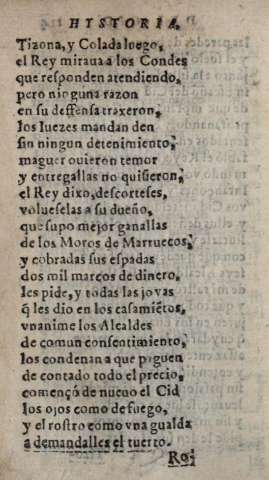 HYSTORIA.
Tizona, y Colada luego,
el Rey miraua a los Condes
que responden atendiendo,
pero ninguna razon
en su deffensa traxeron,
los Iuezes mandan den
sin ningun detenimiento,
maguer ouieron temor
y entregallas no quisieron,
el Rey dixo, descorteses,
volueselas a su dueño,
que supo mejor ganallas
de los Moros de Marruecos,
y cobradas sus espadas
dos mil marcos de dinero,
les pide, y todas las joyas
q̃ les dio en los casamiẽtos,
vnanime los Alcaldes
de comun consentimiento,
los condenan a que paguen
de contado todo el precio,
començò de nueuo el Cid
los ojos como de fuego,
y el rostro como vna gualda
a demandalles el tuerto.
Ro;